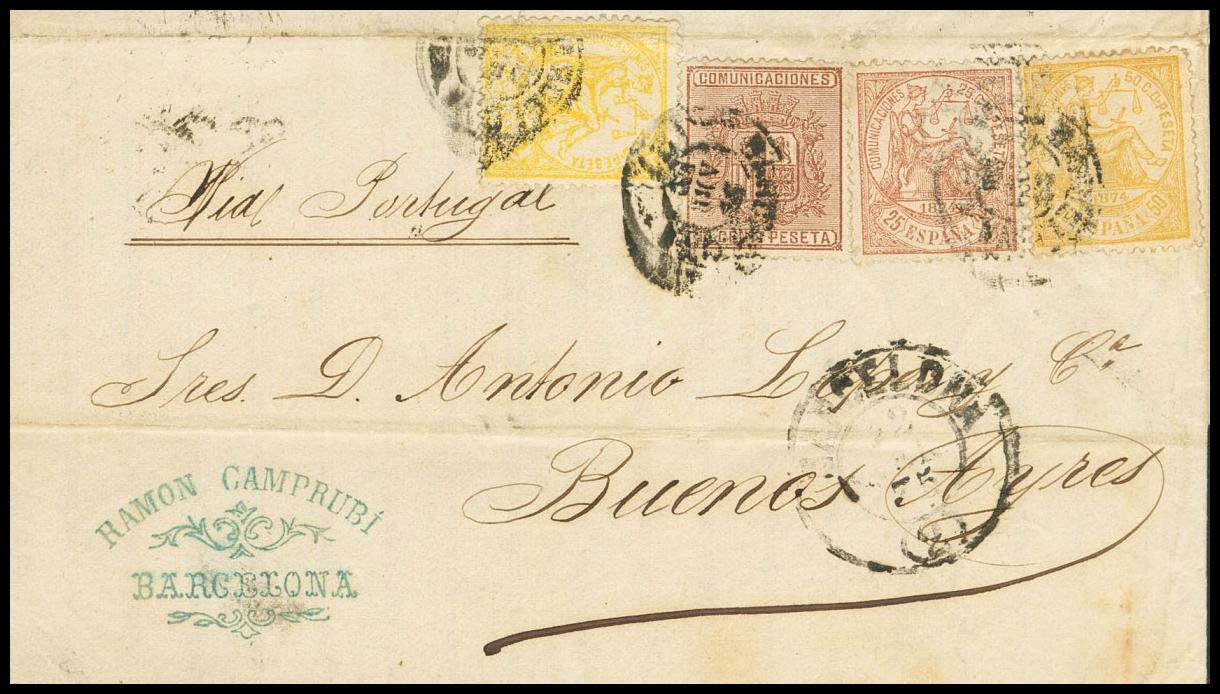 PESETA
COMUNICACIONES
PESETA
COMUNICACIONES 25 C. DE PESETA
1874
25 ESPAÑA
50 C. DE PESETA
1874
ESPAÑA 50
Via Portugal
Sres. D. Antonio Lopez y Cª
Buenos Ayres
RAMON CAMPRUBÍ
BARCELONA